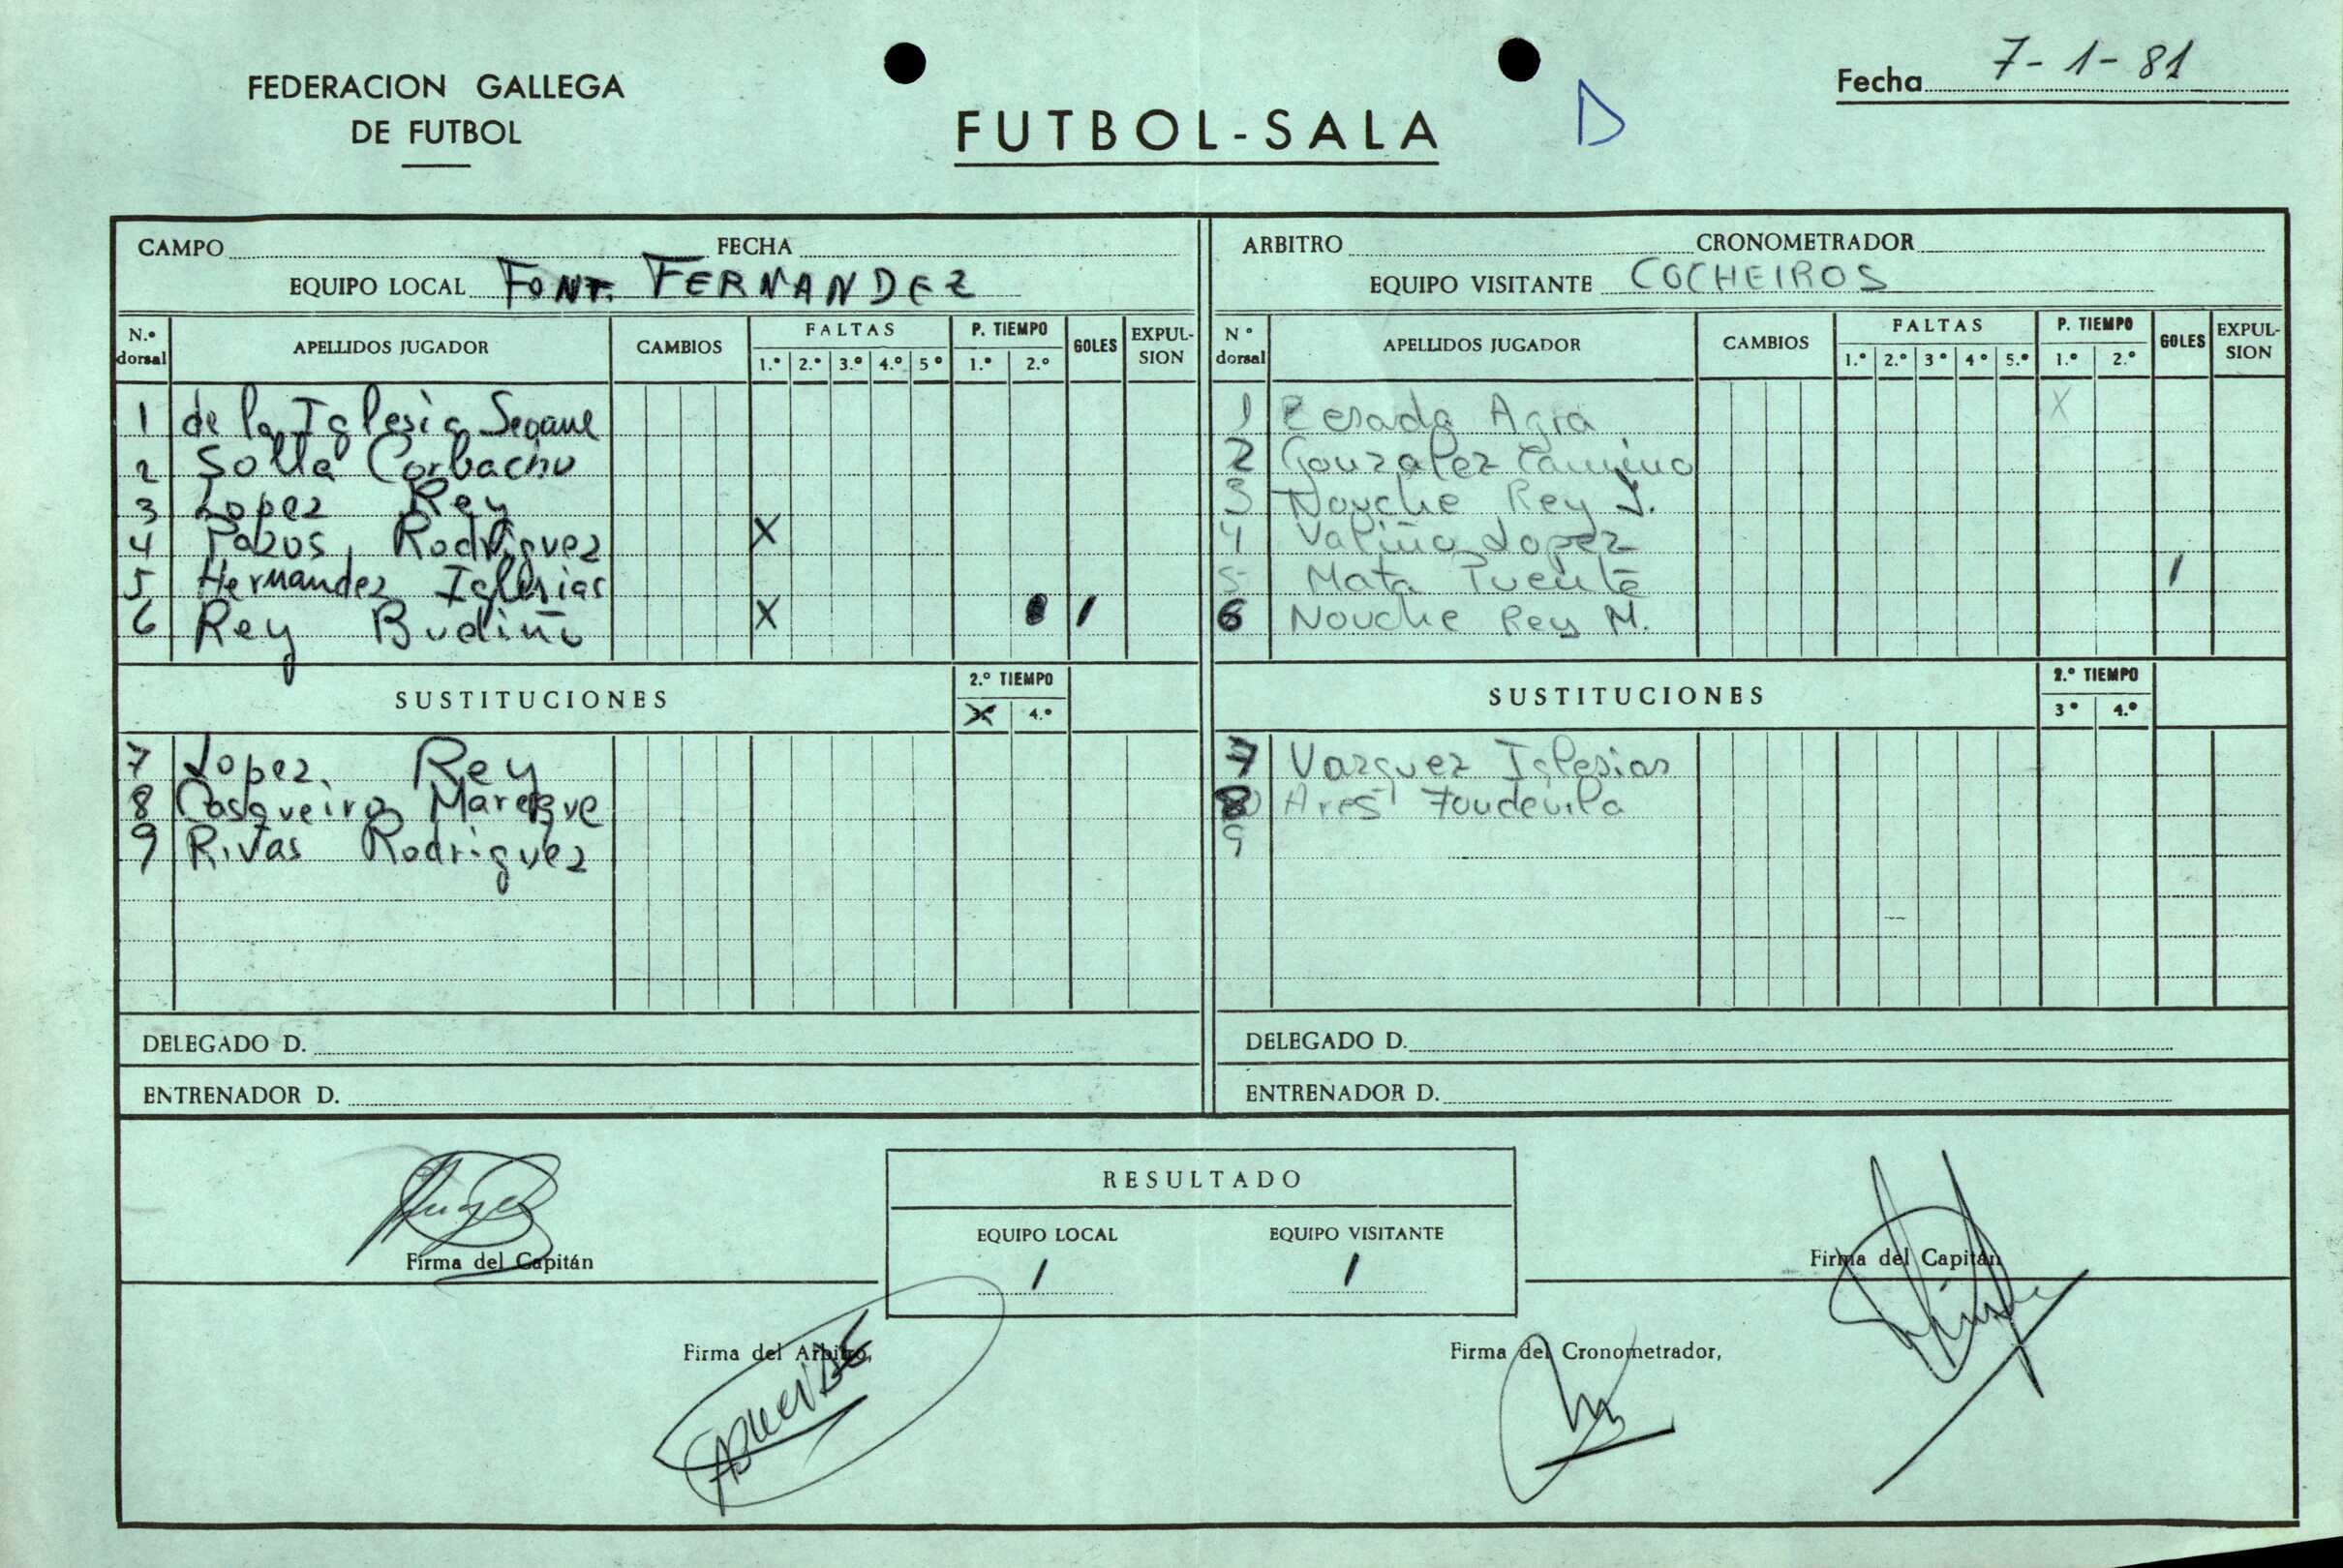 FEDERACION GALLEGA
DE FUTBOL
FUTBOL-SALA
D
Fecha 7-1-81
CAMPO FECHA
EQUIPO LOCAL FONT. FERNANDEZ
N.º dorsal APELLIDOS JUGADOR CAMBIOS FALTAS 1.º 2.º 3.º 4.º 5º P. TIEMPO 1.º 2.º GOLES EXPUL-SION
1 de la Iglesia Seoane
2 Solla Corbacho
3 Lopez Rey
4 Pazos, Rodriguez X
5 Hernandez Iglesias
6 Rey Budiño X 1
SUSTITUCIONES 2.º TIEMPO 4.º
7 Lopez. Rey
8 Casqueiro
9 Rivas Rodriguez
DELEGADO D.
ENTRENADOR D.
ARBITRO CRONOMETRADOR
EQUIPO VISITANTE COCHEIROS
Nº dorsal APELLIDOS JUGADOR CAMBIOS FALTAS 1.º 2.º 3º 4º 5.º P. TIEMPO 1.º 2.º GOLES EXPUL-SION
1 Agra X
2 Gonzalez
3 Nouche Rey J.
4 Valiño Lopez
5 Mata Puente 1
6 Nouche Rey M.
SUSTITUCIONES 2.º TIEMPO 3º 4.º
7 Vazquez Iglesias
8 Ares Fondevila
9
DELEGADO D.
ENTRENADOR D.
Firma del Capitán
RESULTADO
EQUIPO LOCAL EQUIPO VISITANTE
1 1
Firma del Capitán
Firma del Arbitro,
Firma del Cronometrador,